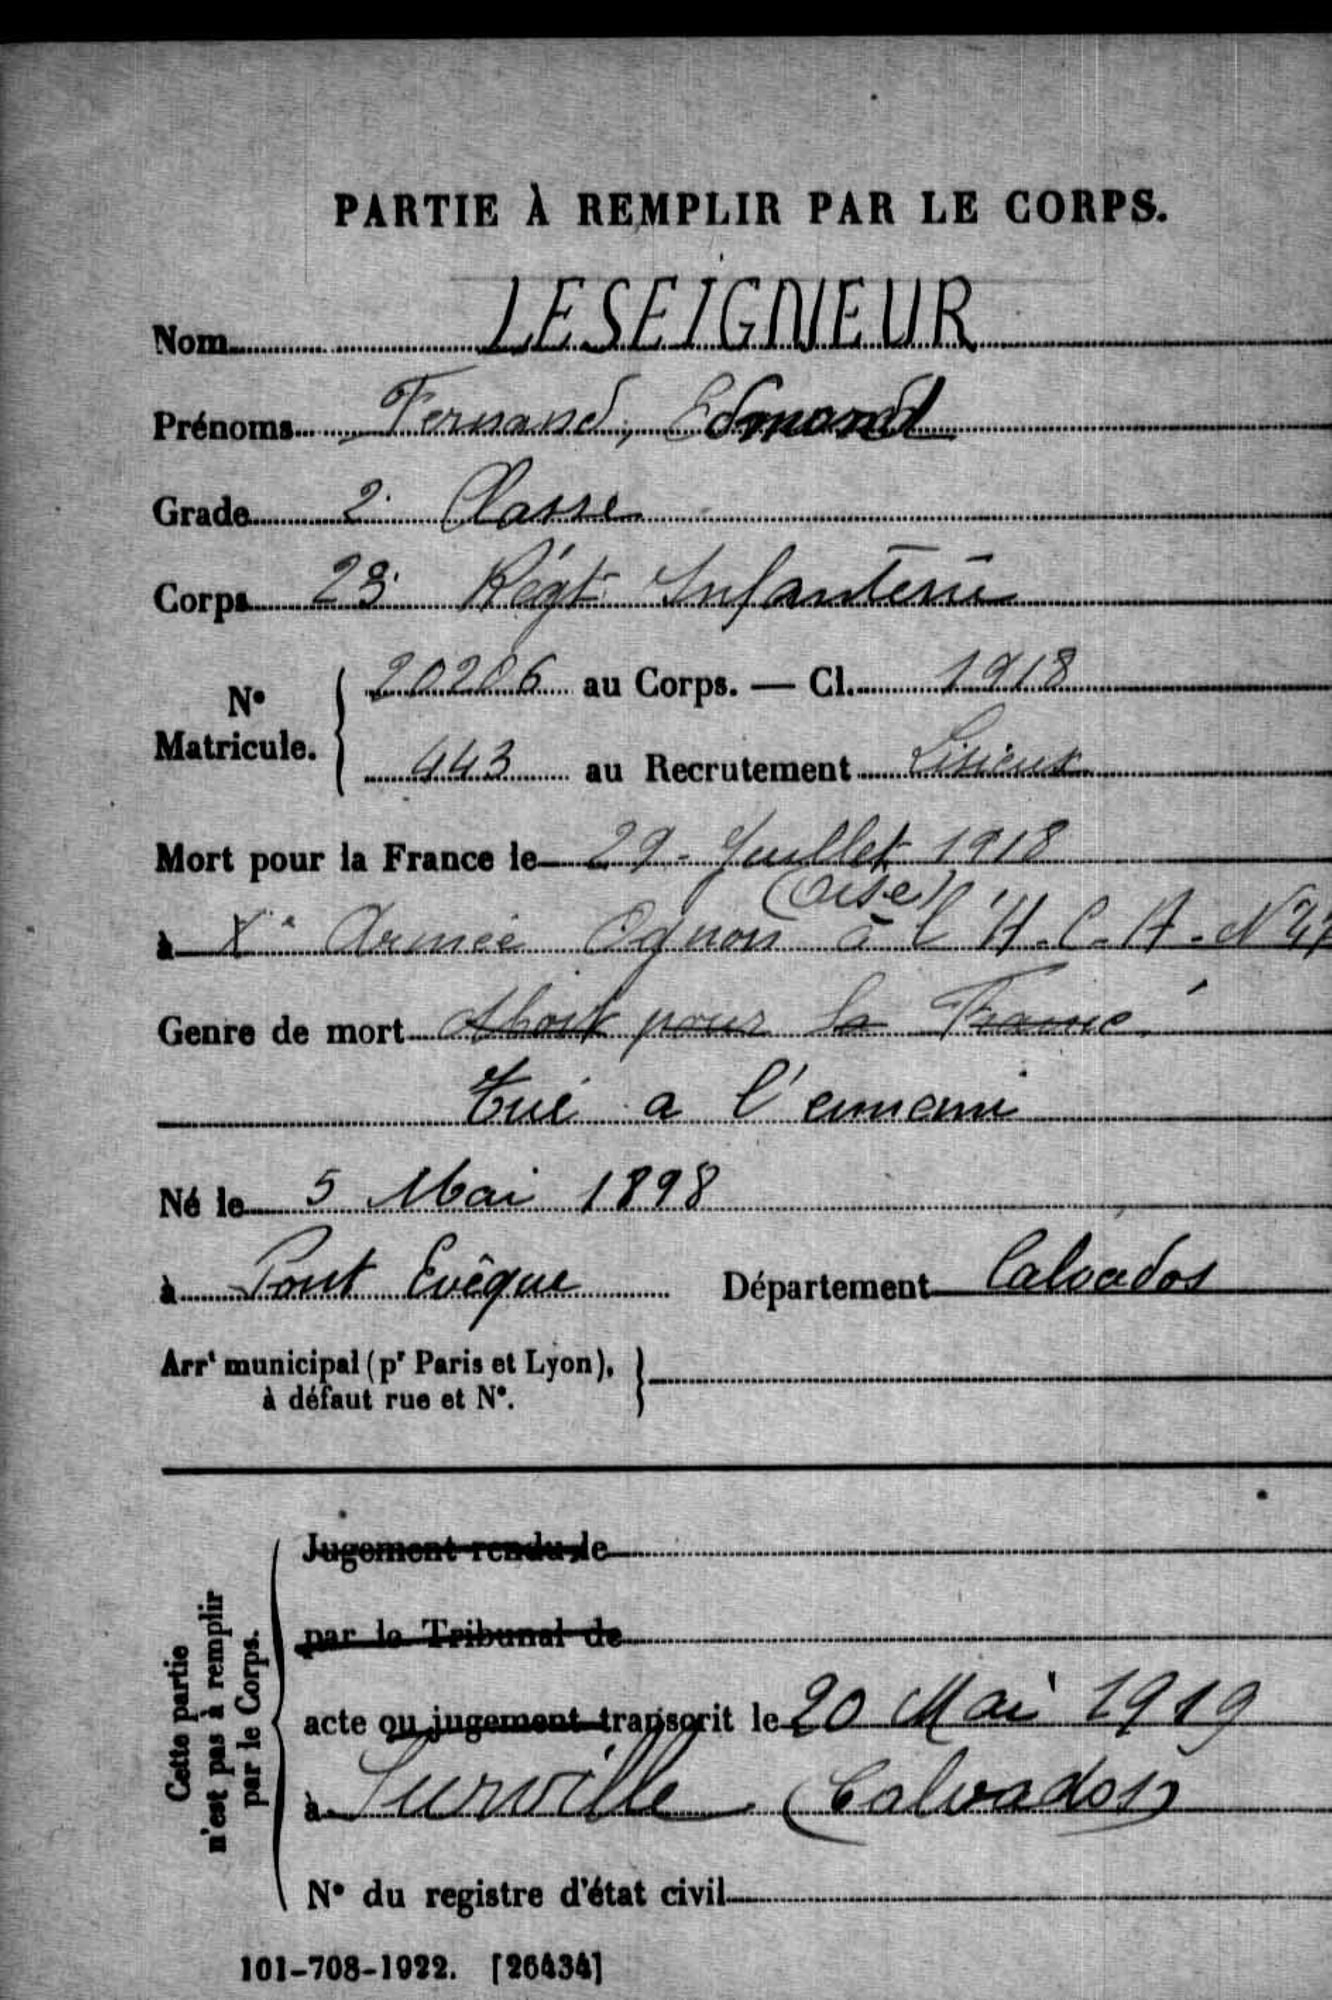 PARTIE À REMPLIR PAR LE CORPS.
Nom LESEIGNEUR
Prénoms Fernand, Edmond
Grade 2e Classe
Corps 23e Régt Infanterie
No Matricule. 20206 au Corps. — Cl. 1918
443 au Recrutement Lisieux
Mort pour la France le 29 - Juillet 1918
(Oise)
à Xe Armée Ognon à l'H.C.A. No 47
Genre de mort Mort pour la France
Tué a l'ennemi
Né le 5 Mai 1898
à Pont Evêque Département Calvados
Arrt municipal (pr Paris et Lyon),
à défaut rue et No.
Cette partie
n'est pas à remplir
par le Corps.
Jugement rendu le
par le Tribunal de
acte ou jugement transcrit le 20 Mai 1919
à Surville (Calvados)
No du registre d'état civil
101-708-1922. [26434]